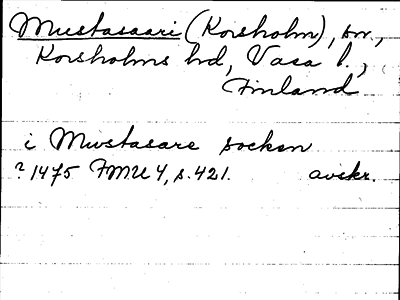 Mustasaari (Korsholm), sn.,
Korsholms hd, Vasa l.,
Finland
i Mwstasare socken
? 1475 FMU 4, s. 421. avskr.